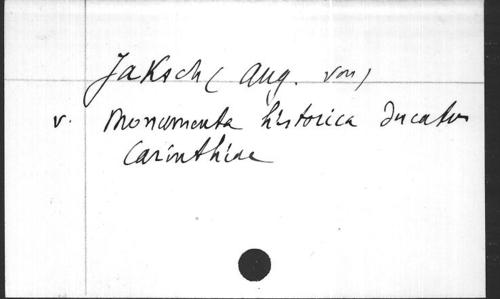 Jaksch (Aug. von)
v. Monumenta historica ducatus
Carinthiae